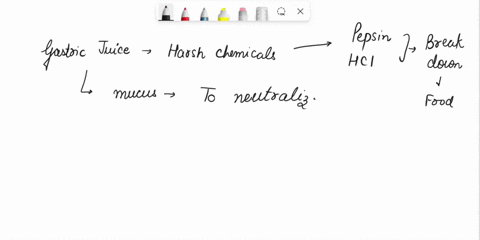 Gastric Juice → Harsh chemicals → Pepsin
HCl
Break
down
↓
Food
↳ mucus → To neutraliz.